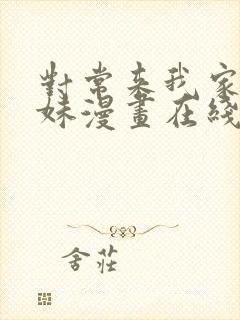 對常來我家
妹漫畫在綫
舍莊